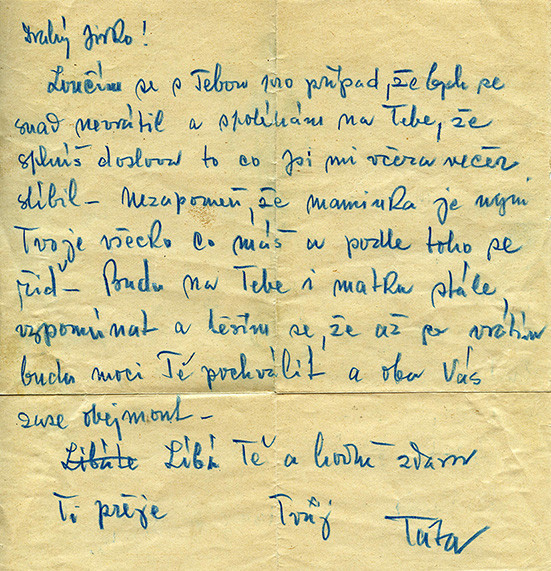 Drahý Jirko!
Loučím se s Tebou pro případ, že bych se
snad nevrátil a spoléhám na Tebe, že
splníš doslova to co jsi mi včera večer
slíbil – nezapomeň, že maminka je nyní
Tvoje všecko co máš a podle toho se
řiď – Budu na Tebe i matku stále
vzpomínat a těším se, že až se vrátím
budu moci Tě pochválit a oba Vás
zase obejmout –
Líbáte Líbá Tě a hodně zdaru
Ti přeje Tvůj Táta